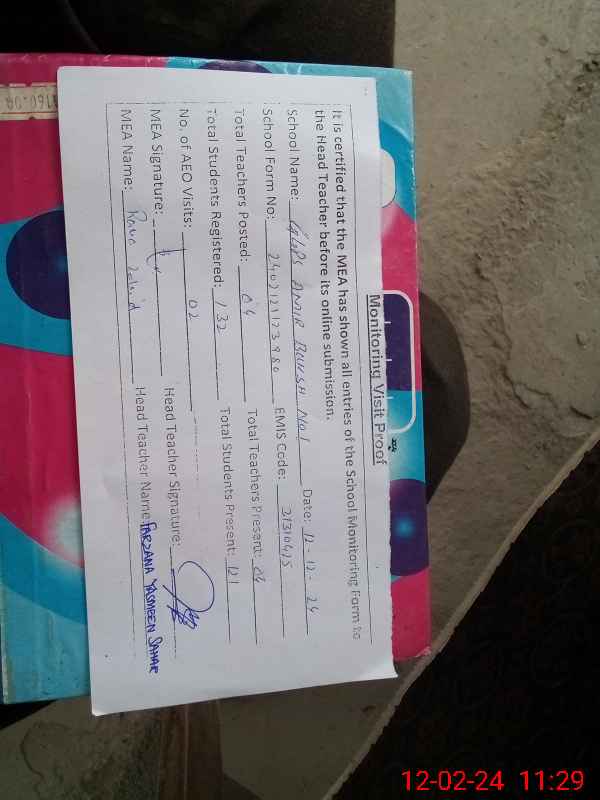 Monitoring Visit Proof
It is certified that the MEA has shown all entries of the School Monitoring Form to
the Head Teacher before its online submission.
School Name: GGPS AMIR BUKSH NO1 Date: 12-12-24
School Form No: 2402121123980 EMIS Code: 31310415
Total Teachers Posted: 04 Total Teachers Present: 04
Total Students Registered: 132 Total Students Present: 121
No. of AEO Visits: 02
MEA Signature: Head Teacher Signature:
MEA Name: Rana Head Teacher Name: FARZANA YASMEEN SAHAR
12-02-24 11:29